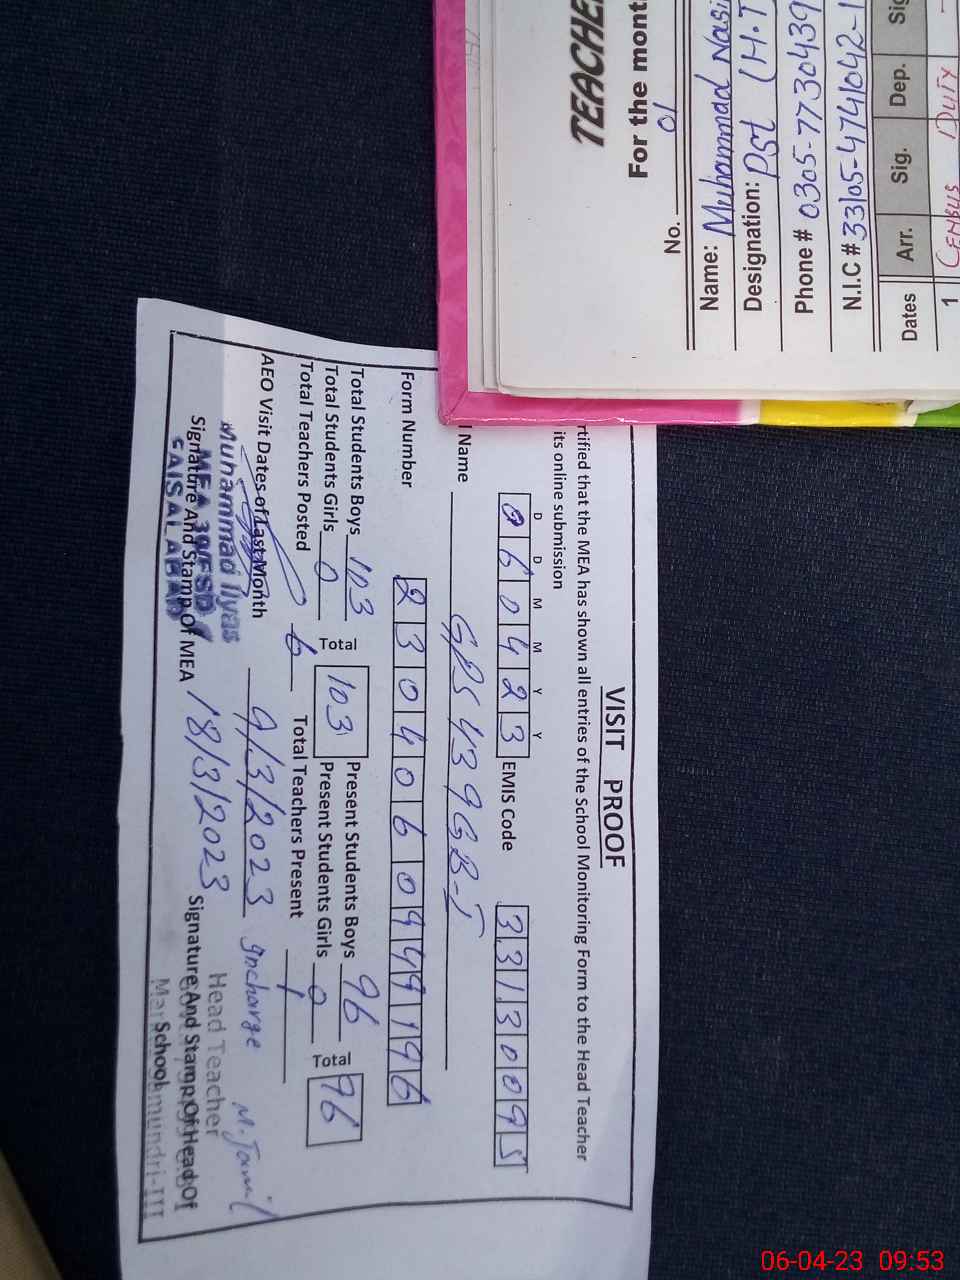 TEACHE
For the mont
No. 01
Name: Muhammad Nasi
Designation: PST (H.T
Phone # 0305-7730439
N.I.C # 33105-4741042-1
Dates Arr. Sig. Dep. Sig
1 CENSUS DUTY
VISIT PROOF
rtified that the MEA has shown all entries of the School Monitoring Form to the Head Teacher
its online submission
D D M M Y Y
060423 EMIS Code 33130095
l Name GPS 439 GB-I
Form Number 2304060949196
Total Students Boys 103 Total 103 Present Students Boys 96 Total 96
Total Students Girls 0 Present Students Girls 0
Total Teachers Posted 6 Total Teachers Present 1
AEO Visit Dates of Last Month 9/3/2023 Incharge M. Jamil
18/3/2023
Muhammad Ilyas
MEA 39/FSD
FAISALABAD
Signature And Stamp Of MEA
Head Teacher
Signature And Stamp Of Head Of
School
06-04-23 09:53